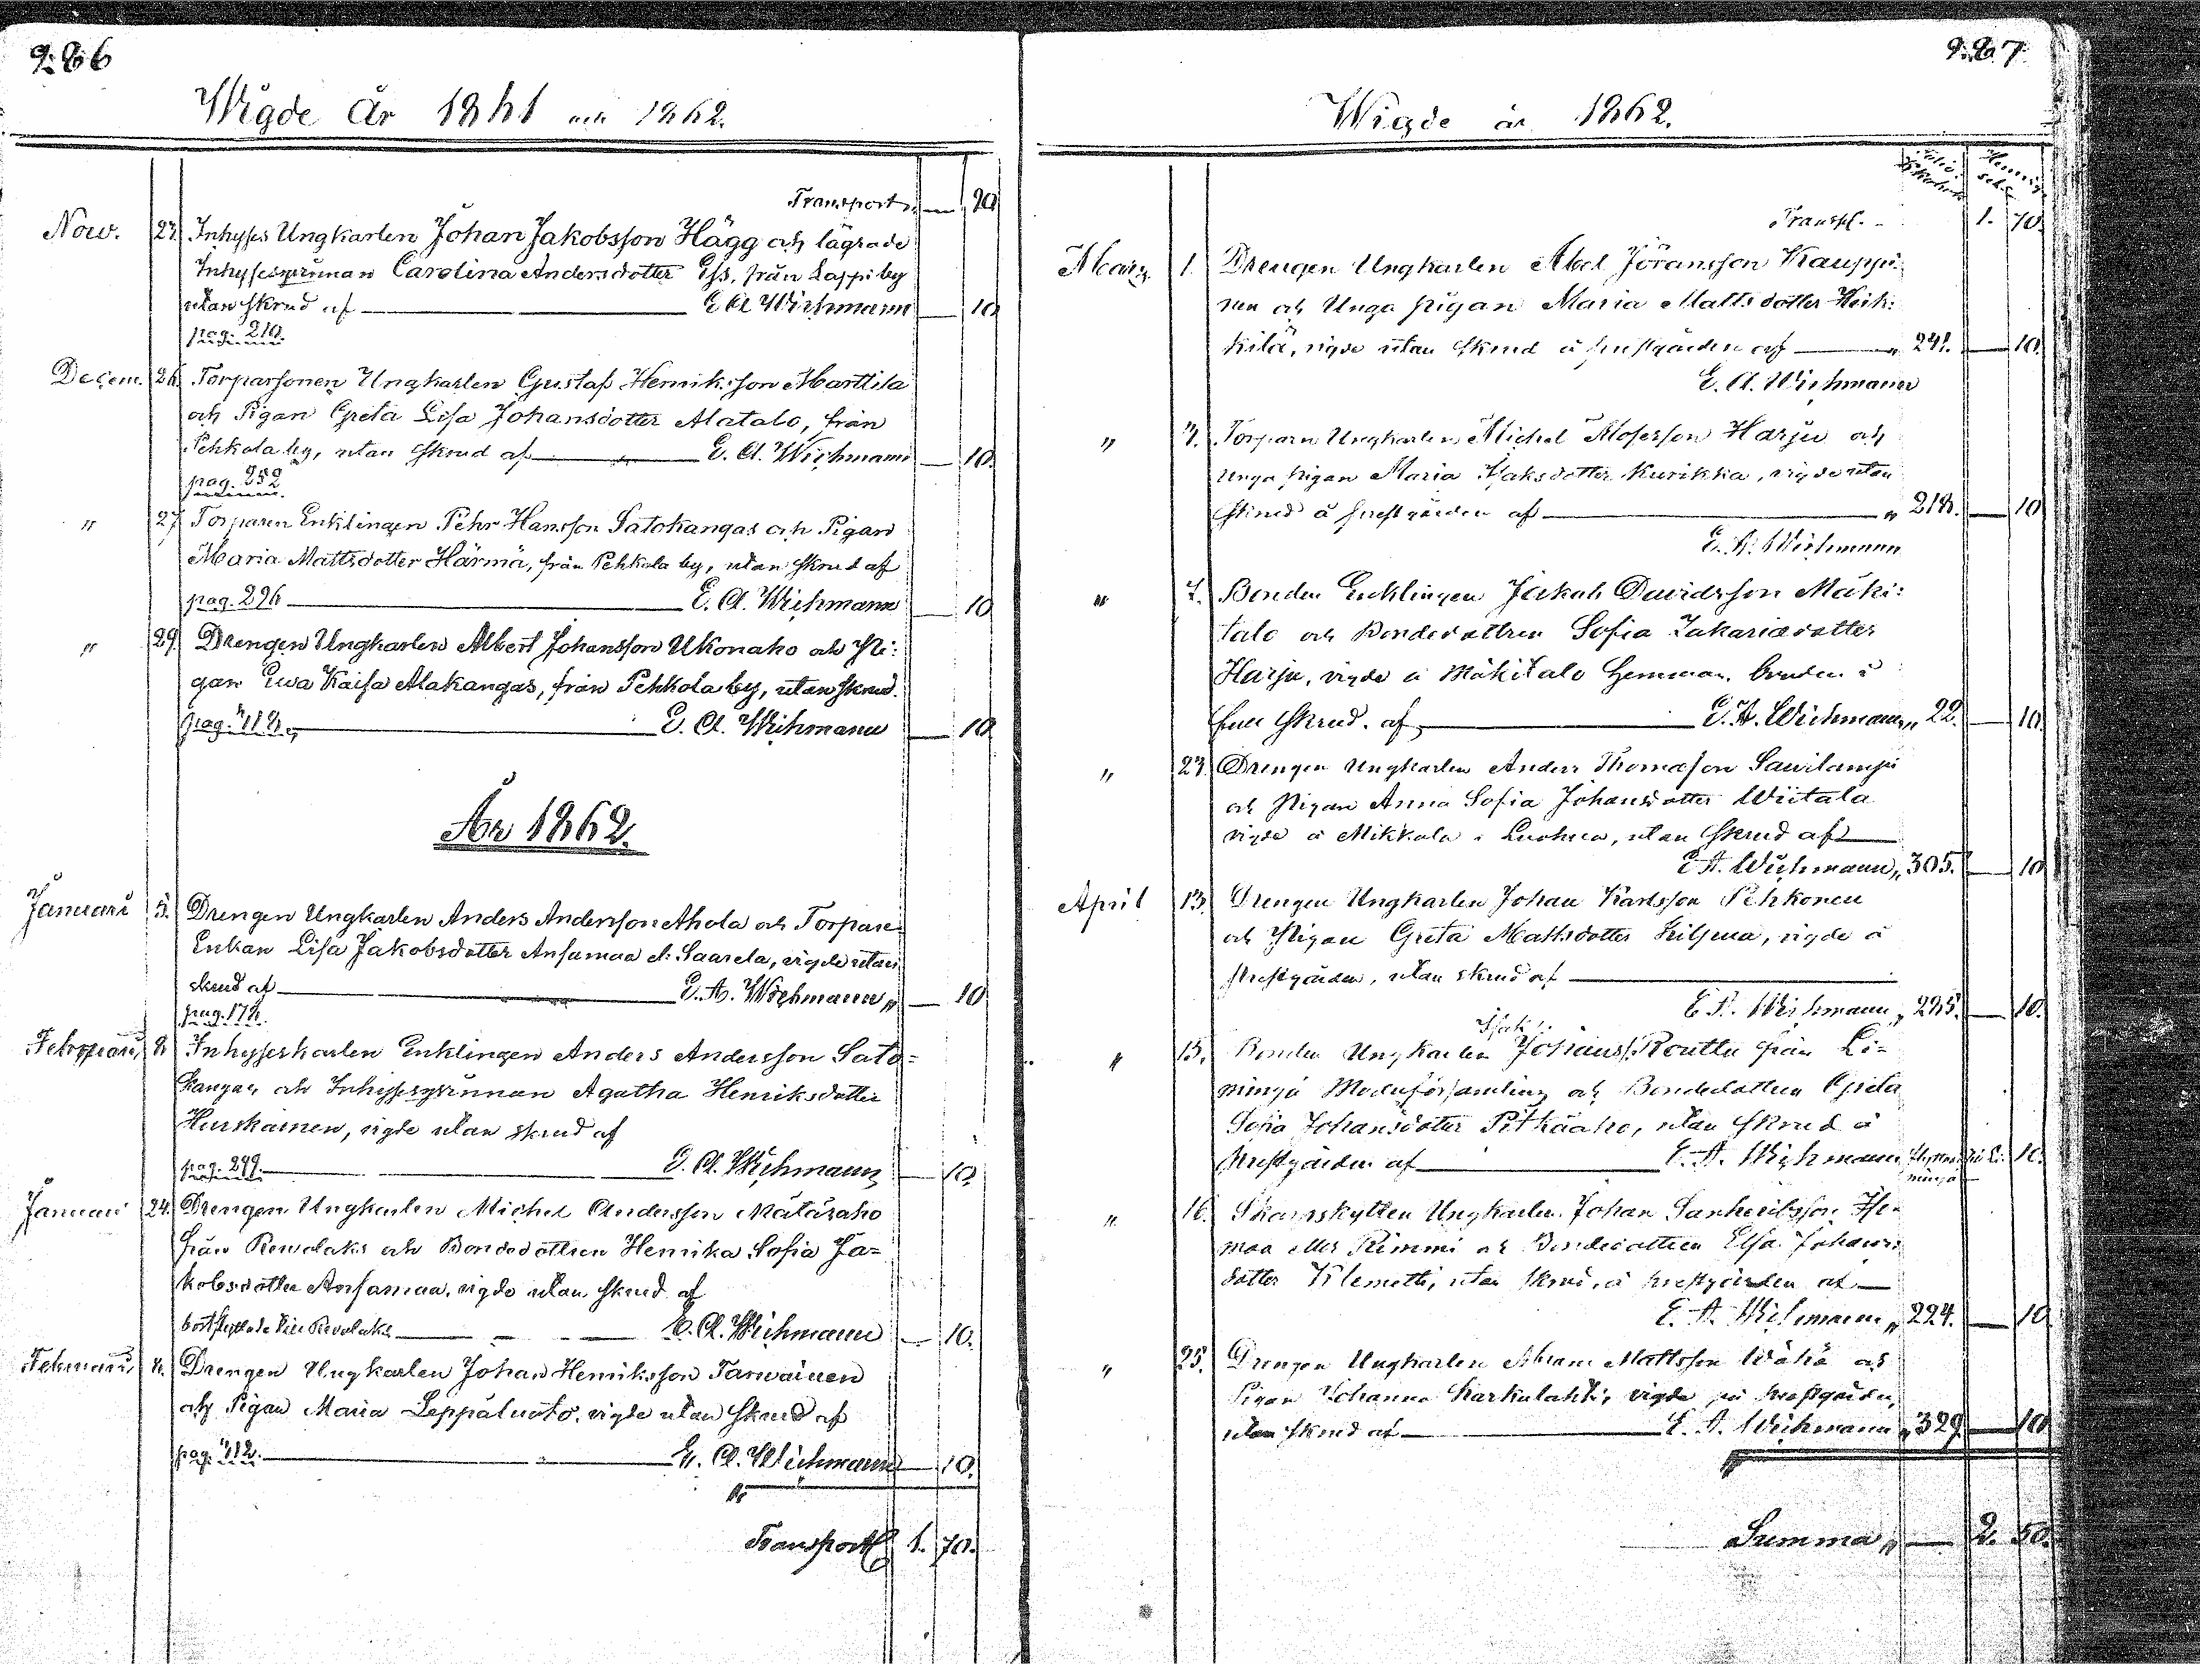 286
Wigde År 1861 och 1862.
Transport „ — 90
Now. 27. Inhyses Ungkarlen Johan Jakobsson Hägg och lägrade
Inhysesqvinnan Carolina Andersdotter Ess, från Lappi by
utan skrud af — E A Wichmann — 10
pag. 210.
Decem. 26. Torparsonen Ungkarlen Gustaf Henriksson Marttila
och Pigan Greta Lisa Johansdotter Alatalo, från
Pehkola by, utan skrud af — E. A. Wichmann — 10.
pag. 252
" 27. Torparen Enklingen Pehr Hansson Satokangas och Pigan
Maria Mattsdotter Härmä, från Pehkola by, utan skrud af
pag. 296 — E. A. Wichmann — 10
" 29. Drengen Ungkarlen Albert Johansson Ukonaho och Pi:
gan Ewa Kaisa Alakangas, från Pehkola by, utan skrud.
pag. — E. A. Wichmann — 10
År 1862.
Januari 5. Drengen Ungkarlen Anders Andersson Ahola och Torpare
Enkan Lisa Jakobsdotter Ansamaa el. Saarela, vigde utan
skrud af — E. A. Wichmann „ — 10
pag. 178.
Februari, 2. Inhyseskarlen Enklingen Anders Andersson Sato=
kangas och Inhysesqvinnan Agatha Henriksdotter
Hurskainen, vigde utan skrud af
pag. 299. — E. A. Wichmann — 10.
Januari 24. Drengen Ungkarlen Michel Andersson Mätäsaho
från Rewolaks och Bondedottren Henrika Sofia Ja=
kobsdotter Ansamaa, vigde utan skrud af
bortflyttade till Revolaks — E. A. Wichmann — 10.
Februari, Drengen Ungkarlen Johan Henriksson Tarwainen
och Pigan Maria Leppäluoto, vigde utan skrud af
pag. 112. — E. A. Wichmann — 10.
Transport 1. 70.
287
Wigde år 1862.
Transpt. 1. 70.
Mars 1. Drengen Ungkarlen Abel Jöransson Kauppi:
nen och Unga pigan Maria Mattsdotter Heik:
kilä, vigde utan skrud å prestgården af — „ 241. — 10.
E. A. Wichmann
" Torparn Ungkarlen Michel Mosesson Harju och
unga pigan Maria Isaksdotter Kurikka, vigde utan
skrud å prestgården af — „ 218. — 10
E. A. Wichmann
" Bonden Enklingen Jakob Davidsson Mäki:
talo och Bondedottren Sofia Zakariædotter
Harju, vigde å Mäkitalo Hemman, bruden i
full skrud. af — E. A. Wichmann „ 22. — 10.
" 23. Drengen Ungkarlen Anders Thomasson Saurilampi
och Pigan Anna Sofia Johansdotter Wiitala
vigde å Mikkola i Luohua, utan skrud af —
E A. Wichmann „ 305. — 10
April 13. Drengen Ungkarlen Johan Karlsson Pehkonen
och Pigan Greta Mattsdotter Kilpua, vigde å
prestgården, utan skrud af —
E A. Wichmann „ 225. — 10.
Isak
" 15. Bonden Ungkarlen Johanss. Routtu från Li=
minga Moderförsamling och Bondedottren Greta
Sofia Johansdotter Pitkäaho, utan skrud å
prestgården af — E. A. Wichmann 10.
" 16. Skarpskytten Ungkarlen Johan Sanheribsson
maa eller Rimmi och Bondedottren Elsa Johans
dotter Klemetti, utan skrud, å prestgården af —
E. A. Wichmann „ 224. — 10
" 25. Drengen Ungkarlen Abram Mattsson Wähä och
Pigan Johanna Karkulahti, vigde på prestgården,
utan skrud af — E. A. Wichmann „ 329 — 10
Summa „ — 2. 50.